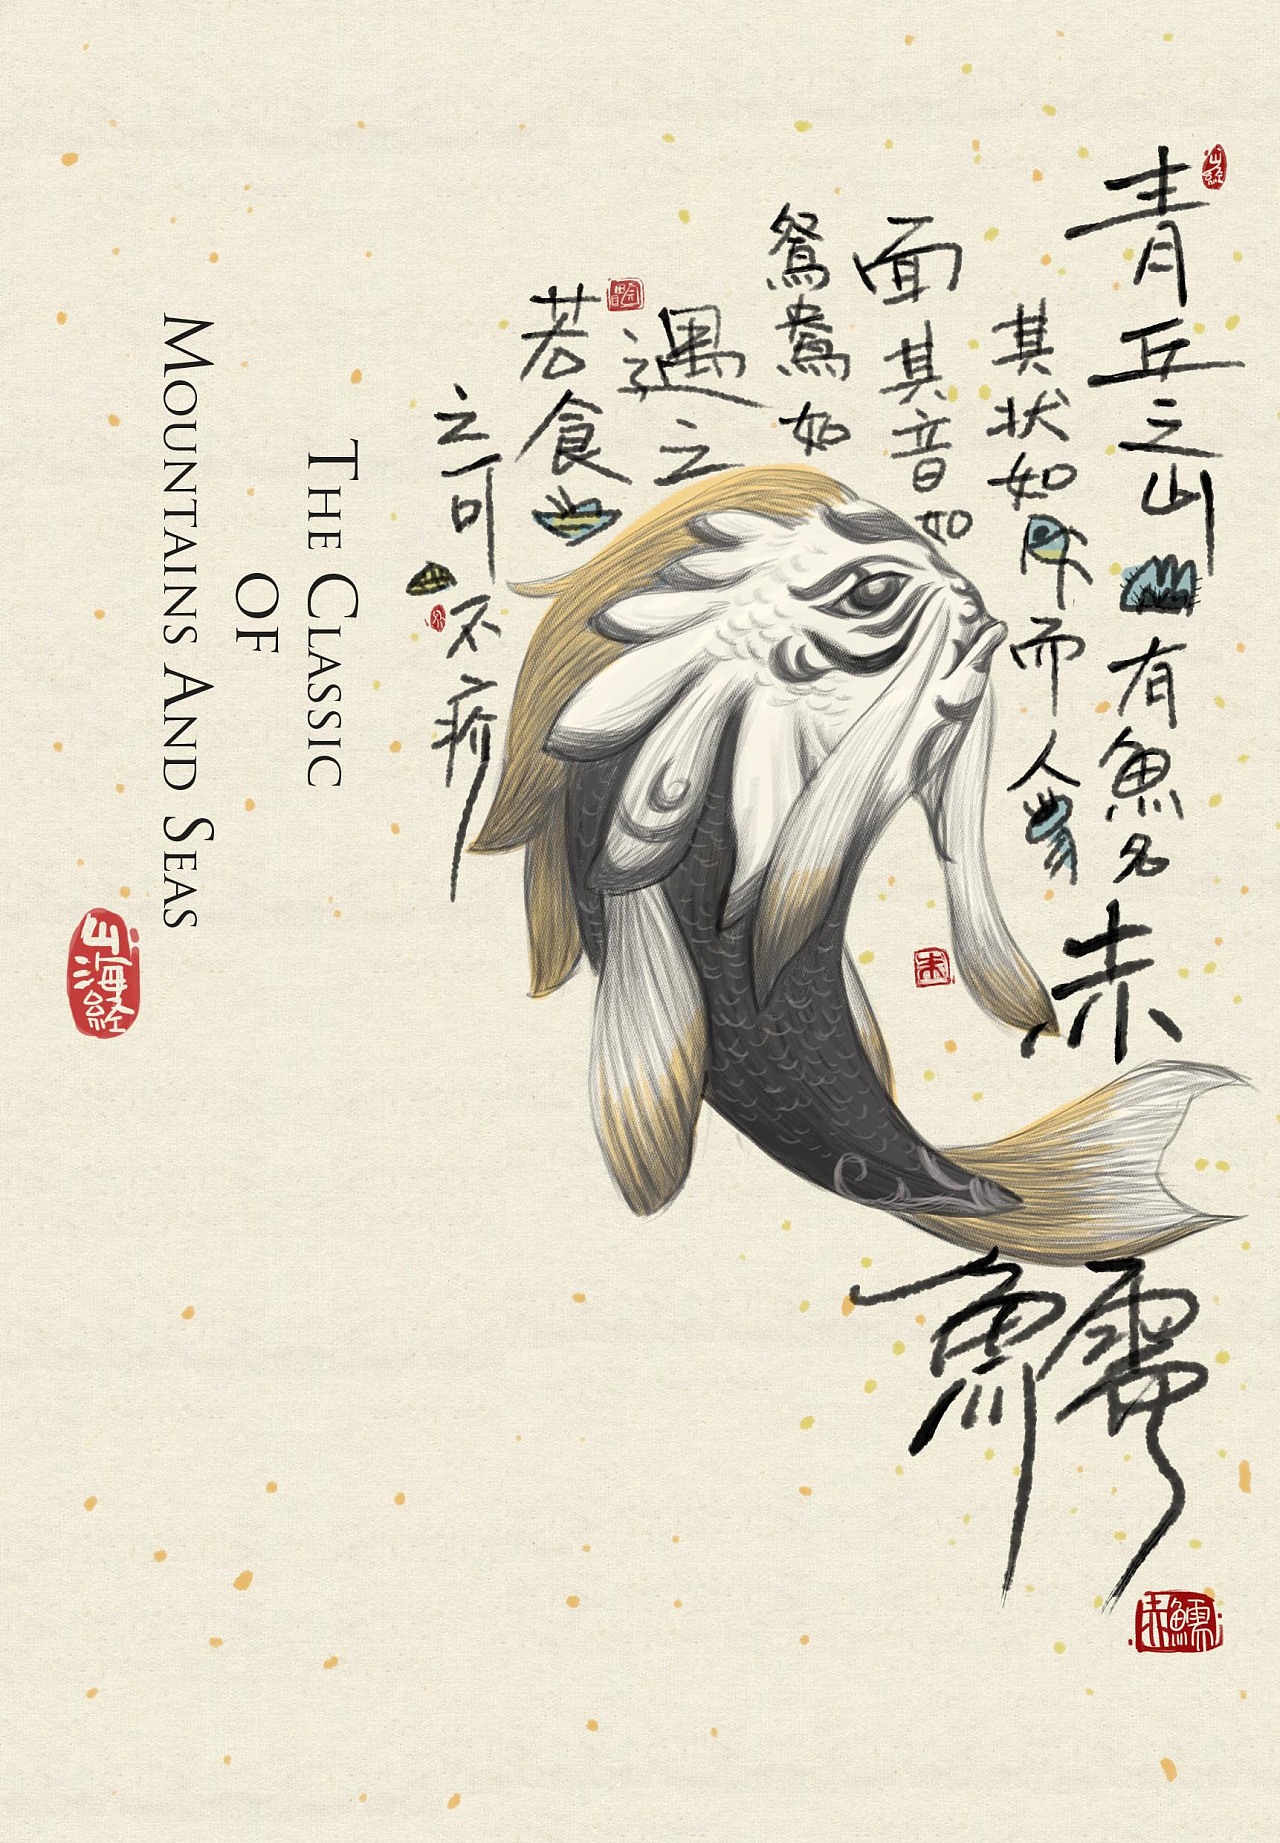 青丘之山有魚名赤鱬
其状如而人
面其音如
鴛鴦如
遇之
若食
之可不疥
THE CLASSIC
OF
MOUNTAINS AND SEAS
山海經
赤鱬